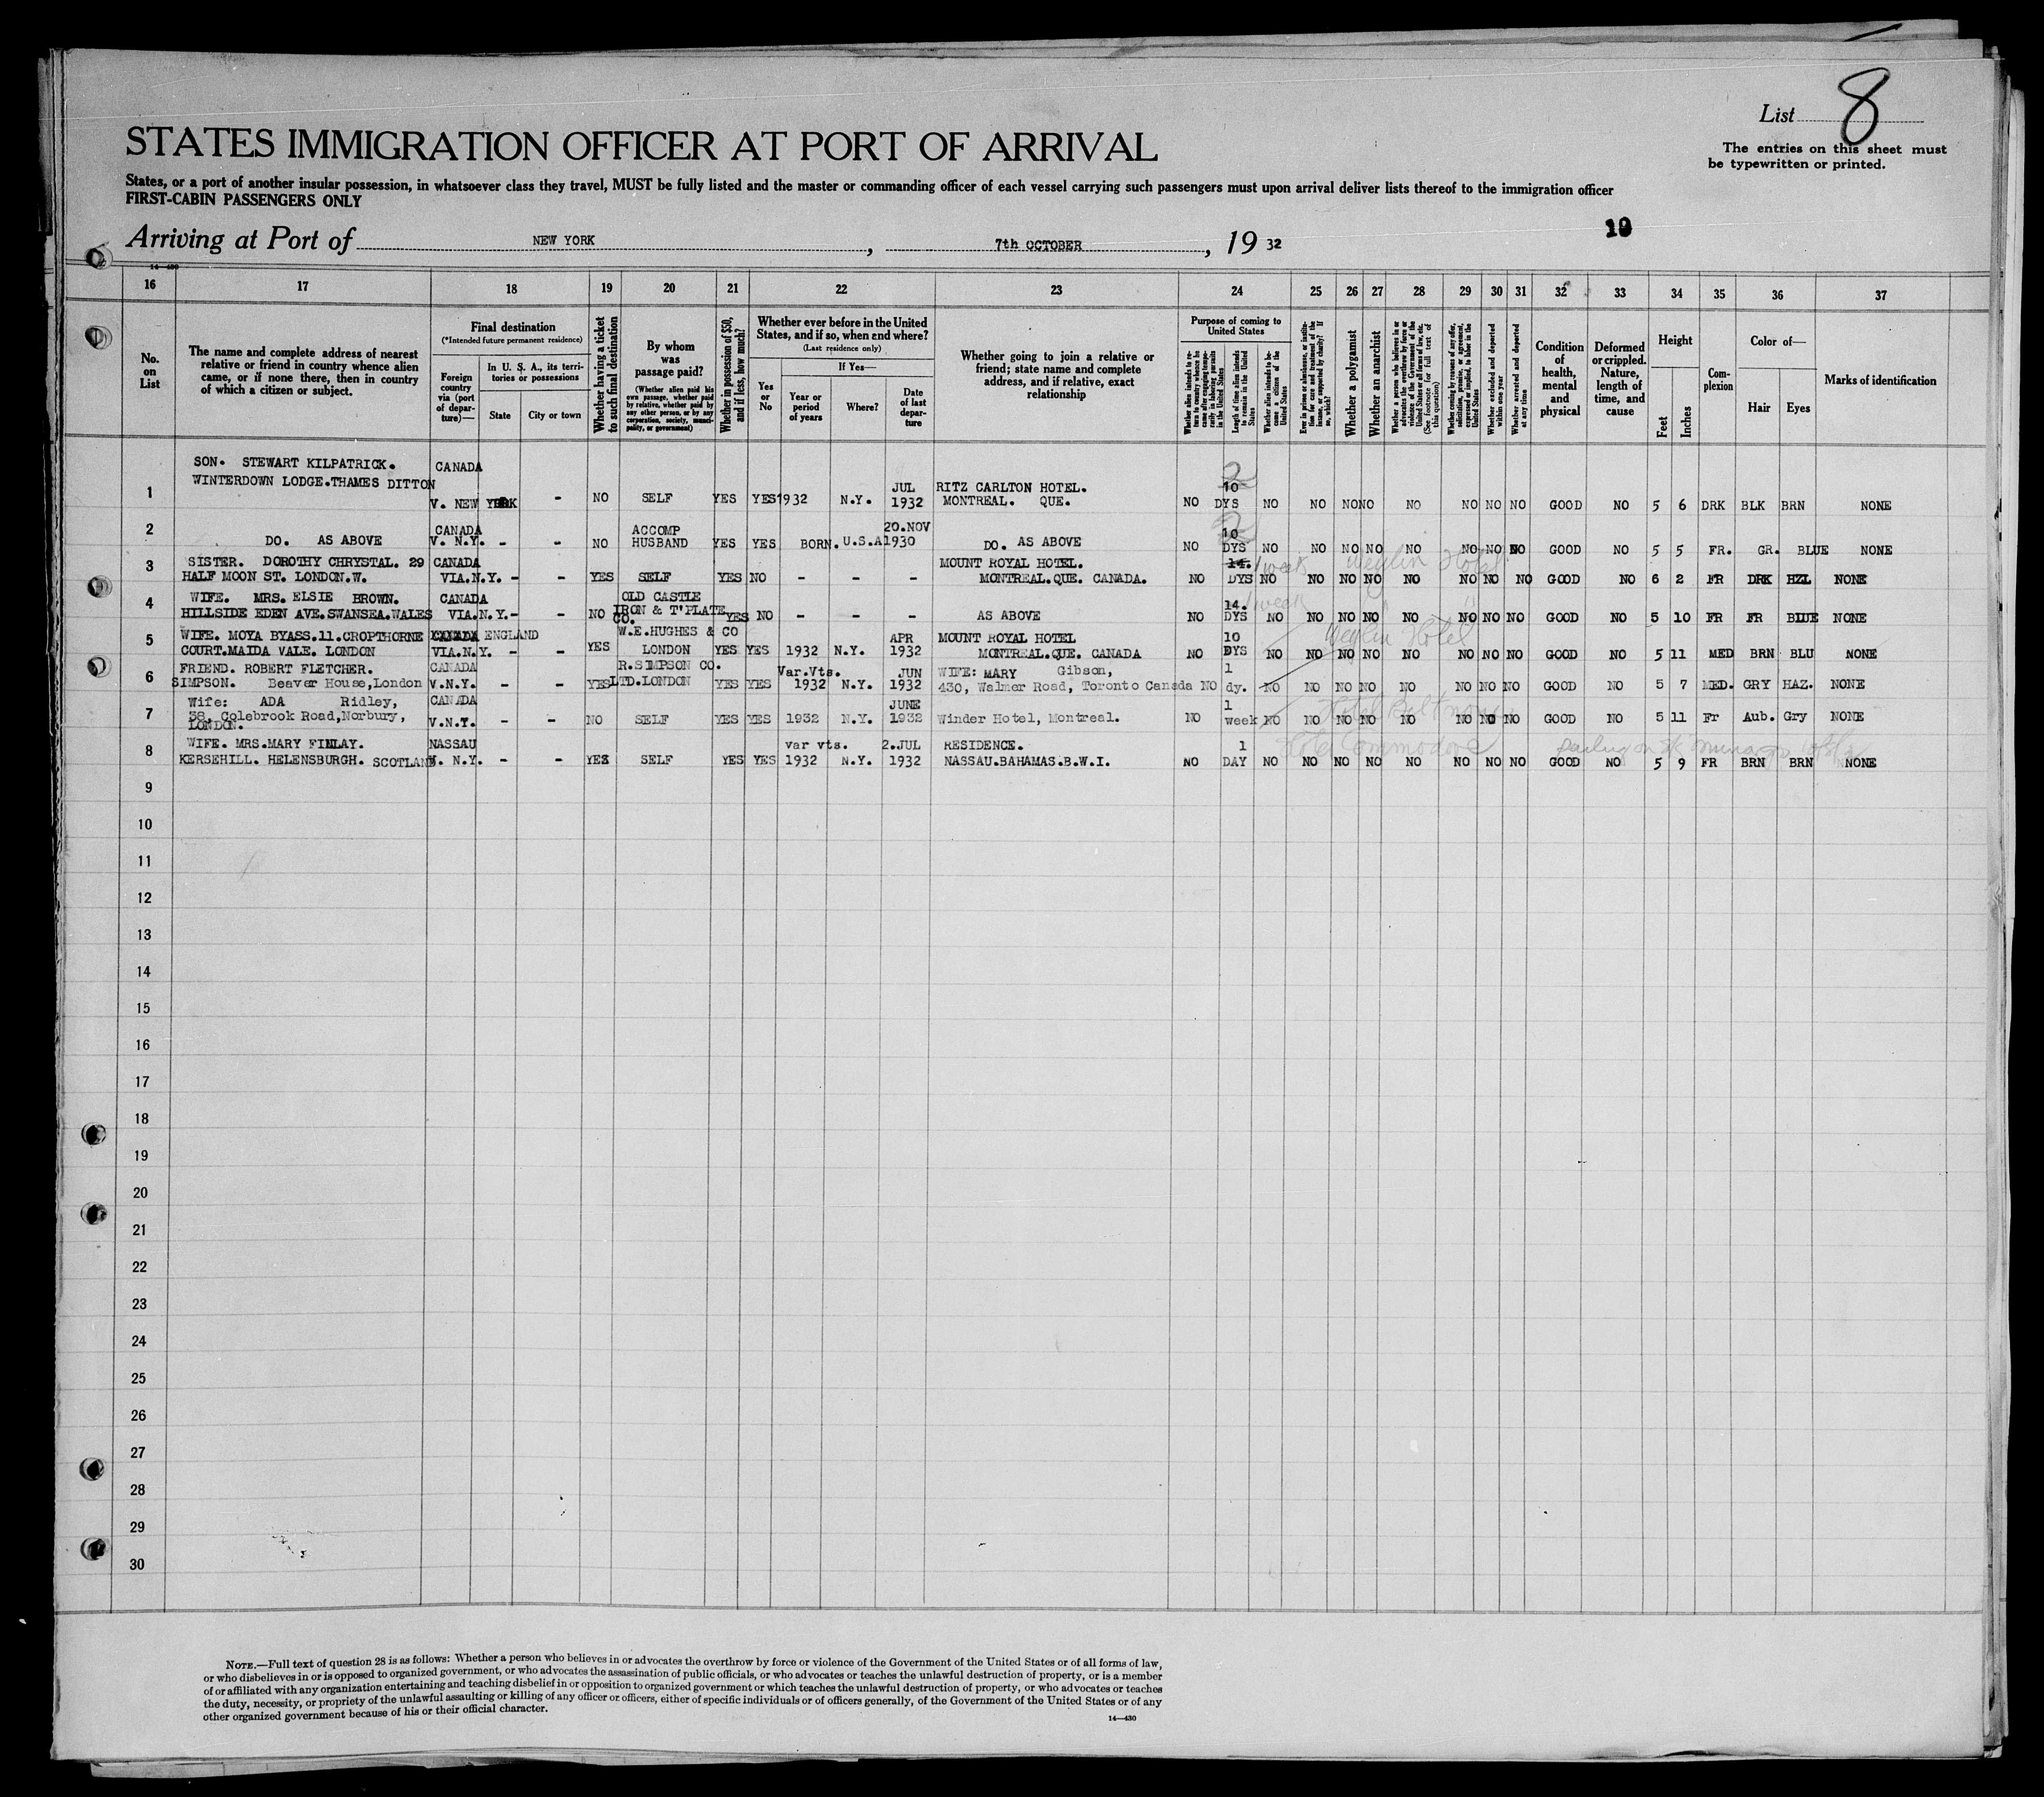 List 8
The entries on this sheet must
be typewritten or printed.
STATES IMMIGRATION OFFICER AT PORT OF ARRIVAL
States, or a port of another insular possession, in whatsoever class they travel, MUST be fully listed and the master or commanding officer of each vessel carrying such passengers must upon arrival deliver lists thereof to the immigration officer
FIRST-CABIN PASSENGERS ONLY
Arriving at Port of NEW YORK, 7th OCTOBER, 19 32
14—430
16 17 18 19 20 21 22 23 24 25 26 27 28 29 30 31 32 33 34 35 36 37
No. on List
The name and complete address of nearest relative or friend in country whence alien came, or if none there, then in country of which a citizen or subject.
Final destination
(*Intended future permanent residence)
Foreign country via (port of departure)—
In U. S. A., its territories or possessions
State
City or town
Whether having a ticket to such final destination
By whom was passage paid?
(Whether alien paid his own passage, whether paid by relative, whether paid by any other person, or by any corporation, society, municipality, or government)
Whether in possession of $50, and if less, how much?
Whether ever before in the United States, and if so, when and where?
(Last residence only)
Yes or No
If Yes—
Year or period of years
Where?
Date of last departure
Whether going to join a relative or friend; state name and complete address, and if relative, exact relationship
Purpose of coming to United States
Whether alien intends to return to country whence he came after engaging temporarily in laboring pursuits in the United States
Length of time alien intends to remain in the United States
Whether alien intends to become a citizen of the United States
Ever in prison or almshouse, or institution for care and treatment of the insane, or supported by charity? If so, which?
Whether a polygamist
Whether an anarchist
Whether a person who believes in or advocates the overthrow by force or violence of the Government of the United States or all forms of law, etc. (See footnote for full text of this question)
Whether coming by reason of any offer, solicitation, promise, or agreement, expressed or implied, to labor in the United States
Whether excluded and deported within one year
Whether arrested and deported at any time
Condition of health, mental and physical
Deformed or crippled. Nature, length of time, and cause
Height
Feet
Inches
Complexion
Color of—
Hair
Eyes
Marks of identification
1 SON. STEWART KILPATRICK. WINTERDOWN LODGE.THAMES DITTON CANADA V. NEW YORK - NO SELF YES YES 1932 N.Y. JUL 1932 RITZ CARLTON HOTEL. MONTREAL. QUE. NO 2 10 DYS NO NO NO NO NO NO NO NO GOOD NO 5 6 DRK BLK BRN NONE
2 DO. AS ABOVE CANADA V. N.Y. - - NO ACCOMP HUSBAND YES YES BORN. U.S.A 20.NOV 1930 DO. AS ABOVE NO 2 10 DYS NO NO NO NO NO NO NO NO GOOD NO 5 5 FR. GR. BLUE NONE
3 SISTER. DOROTHY CHRYSTAL. 29 HALF MOON ST. LONDON.W. CANADA VIA.N.Y. - - YES SELF YES NO - - - MOUNT ROYAL HOTEL. MONTREAL.QUE. CANADA. NO 14. DYS 1 week NO NO NO NO NO NO NO NO GOOD NO 6 2 FR DRK HZL NONE
Weylin Hotel
4 WIFE. MRS. ELSIE BROWN. HILLSIDE EDEN AVE.SWANSEA.WALES CANADA VIA.N.Y. - - NO OLD CASTLE IRON & T'PLATE CO. YES NO - - - AS ABOVE NO 14. DYS 1 week NO NO NO NO NO NO NO NO GOOD NO 5 10 FR FR BLUE NONE
5 WIFE. MOYA BYASS.11.CROPTHORNE COURT.MAIDA VALE. LONDON CANADA ENGLAND VIA.N.Y. - - YES W.E.HUGHES & CO LONDON YES YES 1932 N.Y. APR 1932 MOUNT ROYAL HOTEL MONTREAL.QUE. CANADA NO 10 DYS NO NO NO NO NO NO NO NO GOOD NO 5 11 MED BRN BLU NONE
Weylin Hotel
6 FRIEND. ROBERT FLETCHER. SIMPSON. Beaver House,London CANADA V.N.Y. - - YES R.SIMPSON CO. LTD.LONDON YES YES Var.Vts. 1932 N.Y. JUN 1932 WIFE: MARY Gibson, 430, Walmer Road, Toronto Canada NO 1 dy. NO NO NO NO NO NO NO NO GOOD NO 5 7 MED. GRY HAZ. NONE
7 Wife: ADA Ridley, 38, Colebrook Road,Norbury, LONDON. CANADA V.N.Y. - - NO SELF YES YES 1932 N.Y. JUNE 1932 Winder Hotel, Montreal. NO 1 week NO NO NO NO NO NO NO NO GOOD NO 5 11 Fr Aub. Gry NONE
Hotel Biltmore
8 WIFE. MRS.MARY FINLAY. KERSEHILL. HELENSBURGH. SCOTLAND NASSAU V. N.Y. - - YES SELF YES YES var vts. 1932 N.Y. 2.JUL 1932 RESIDENCE. NASSAU.BAHAMAS.B.W.I. NO 1 DAY NO NO NO NO NO NO NO NO GOOD NO 5 9 FR BRN BRN NONE
Hotel Commodore
9
10
11
12
13
14
15
16
17
18
19
20
21
22
23
24
25
26
27
28
29
30
NOTE.—Full text of question 28 is as follows: Whether a person who believes in or advocates the overthrow by force or violence of the Government of the United States or of all forms of law,
or who disbelieves in or is opposed to organized government, or who advocates the assassination of public officials, or who advocates or teaches the unlawful destruction of property, or is a member
of or affiliated with any organization entertaining and teaching disbelief in or opposition to organized government or which teaches the unlawful destruction of property, or who advocates or teaches
the duty, necessity, or propriety of the unlawful assaulting or killing of any officer or officers, either of specific individuals or of officers generally, of the Government of the United States or of any
other organized government because of his or their official character.
14—430